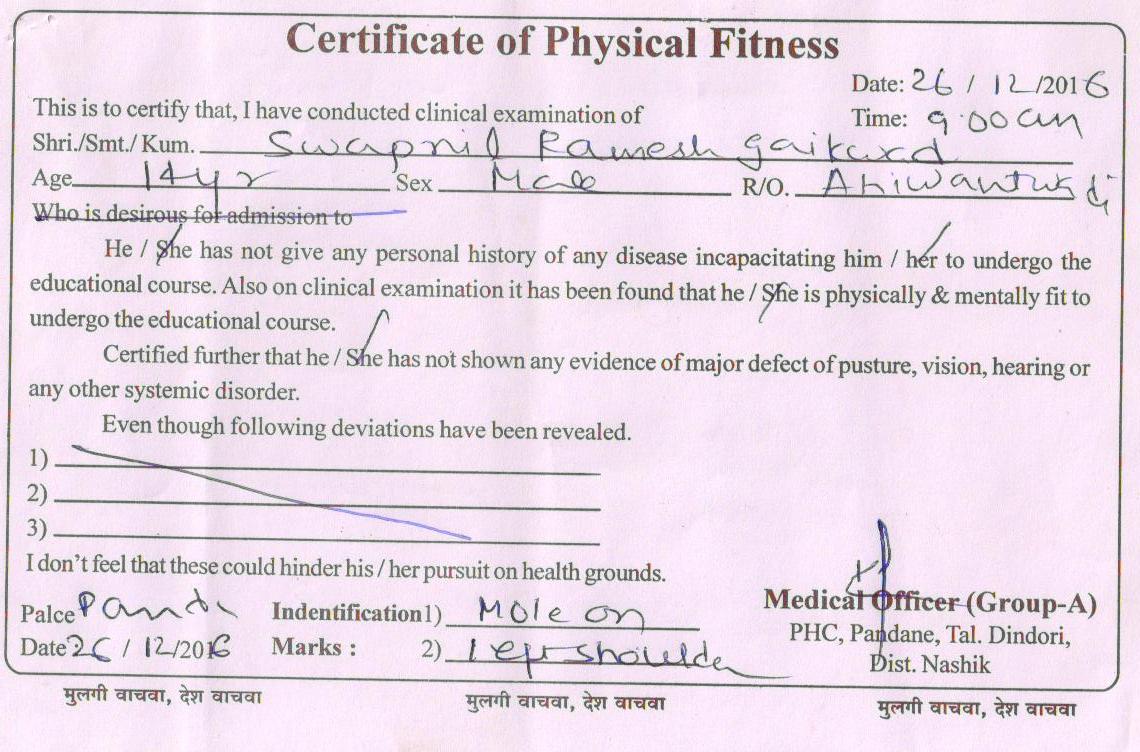 Certificate of Physical Fitness
Date: 26 / 12 /2016
This is to certify that, I have conducted clinical examination of
Time: 9.00 am
Shri./Smt./ Kum. Swapnil Ramesh gaikwad
Age 14 yr Sex Male R/O. Ahiwantwadi
Who is desirous for admission to
He / She has not give any personal history of any disease incapacitating him / her to undergo the
educational course. Also on clinical examination it has been found that he / She is physically & mentally fit to
undergo the educational course.
Certified further that he / She has not shown any evidence of major defect of pusture, vision, hearing or
any other systemic disorder.
Even though following deviations have been revealed.
1)
2)
3)
I don't feel that these could hinder his / her pursuit on health grounds.
Palce Indentification 1) Mole on
Date 26 / 12/2016 Marks : 2) left shoulder
Medical Officer (Group-A)
PHC, Pandane, Tal. Dindori,
Dist. Nashik
मुलगी वाचवा, देश वाचवा मुलगी वाचवा, देश वाचवा मुलगी वाचवा, देश वाचवा